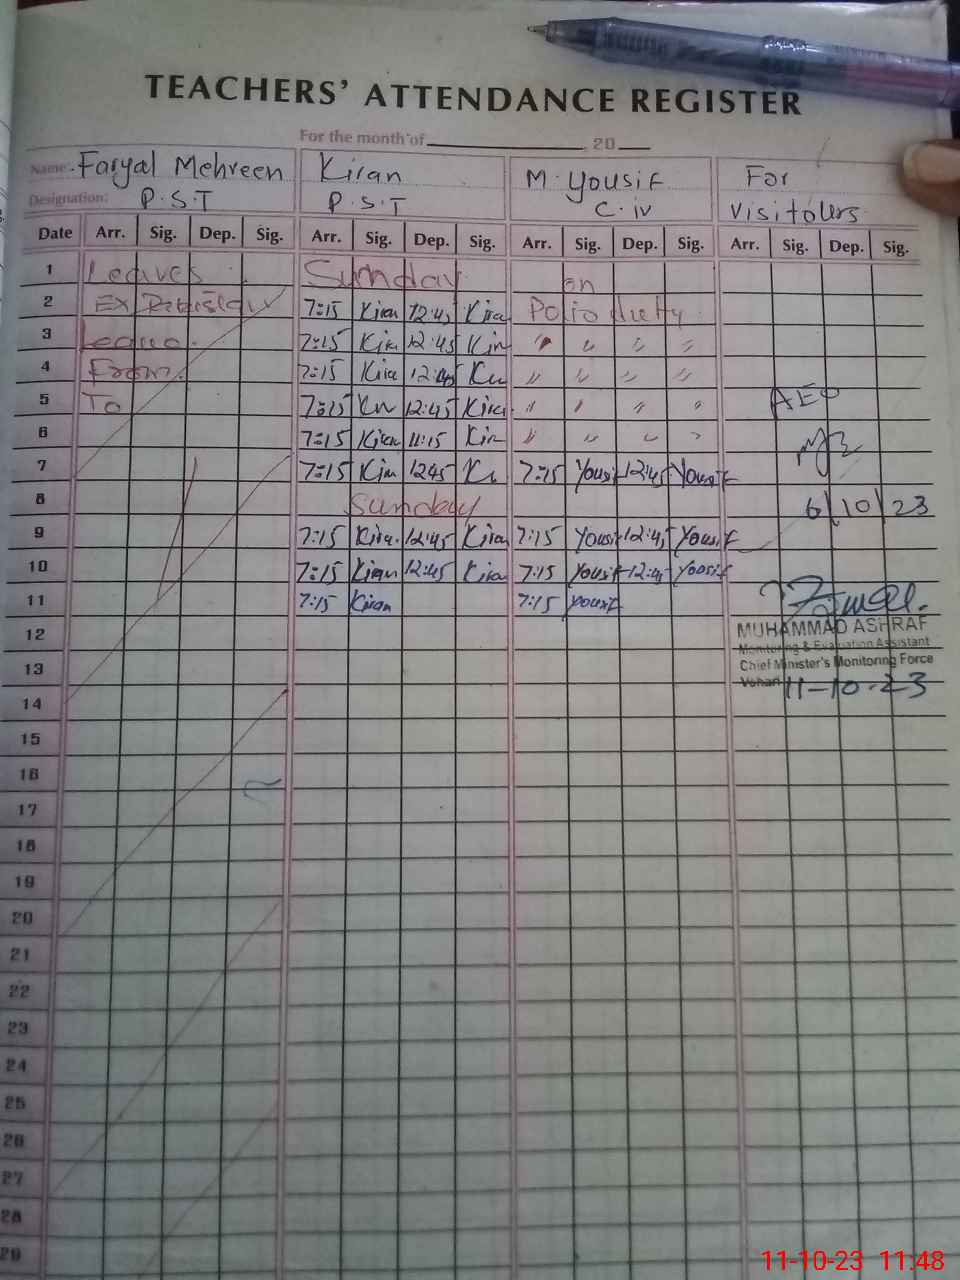 TEACHERS' ATTENDANCE REGISTER
For the month of , 20
Name: Faryal Mehreen Kiran M. Yousif For
Designation: P.S.T P.S.T C.iv Visitours
Date Arr. Sig. Dep. Sig. Arr. Sig. Dep. Sig. Arr. Sig. Dep. Sig. Arr. Sig. Dep. Sig.
1 Leaves Sunday on
2 Ex 7:15 Kiran 12:45 Kiran Polio duty
3 7:15 Kiran 12:45 Kirn " " " "
4 From 7:15 Kiran 12:45 " " " "
5 To 7:15 12:45 Kiran " " " " AEO
6 7:15 Kiran 11:15 Kirn " " " "
7 7:15 Kirn 12:45 7:15 Yousif 12:45 Yousif
8 Sunday 6/10/23
9 7:15 Kiran 12:45 Kiran 7:15 Yousif 12:45 Yousif
10 7:15 Kiran 12:45 Kiran 7:15 Yousif 12:45 Yousif
11 7:15 Kiran 7:15 Yousif
12 MUHAMMAD ASHRAF
Monitoring & Evaluation Assistant
13 Chief Minister's Monitoring Force
Vehari 11-10-23
14
15
16
17
18
19
20
21
22
23
24
25
26
27
28
29
11-10-23 11:48